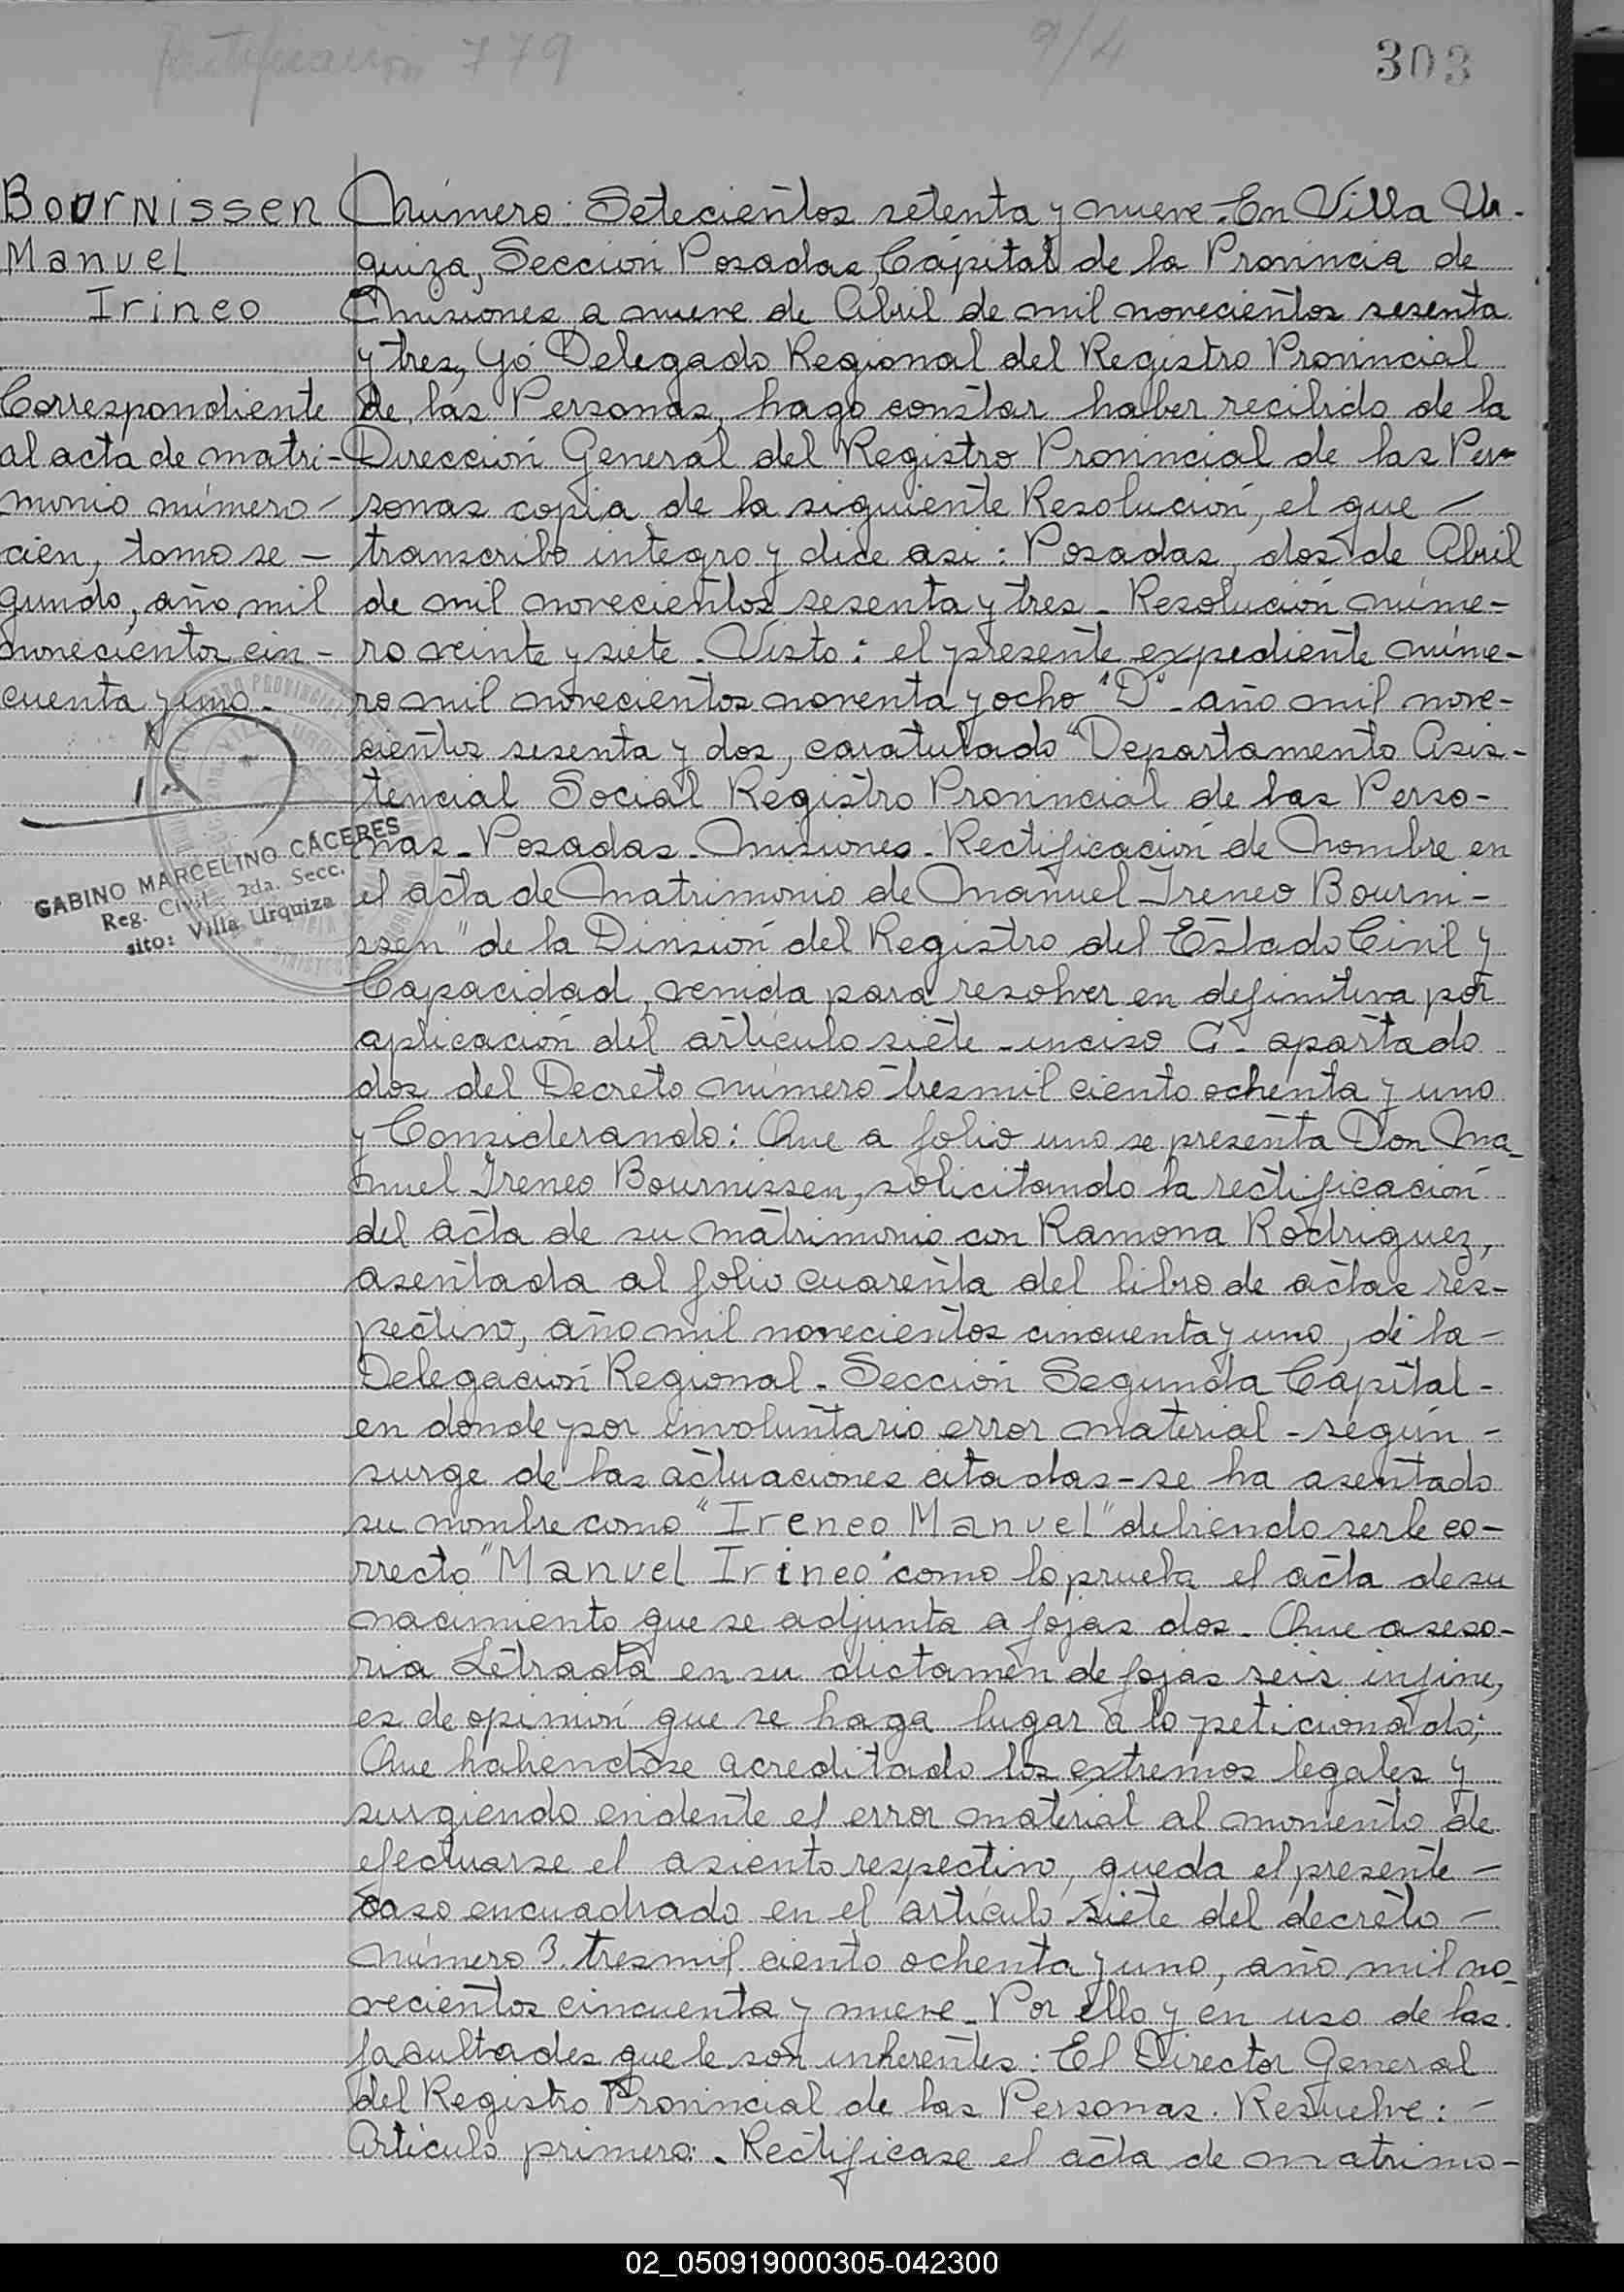 Rectificación 779
9/4
303
Bournissen
Manuel
Irineo
Correspondiente
al acta de matri-
monio número -
cien, tomo se -
gundo, año mil
novecientos cin -
cuenta y uno.
GABINO MARCELINO CÁCERES
Reg. Civil 2da. Secc.
sito: Villa Urquiza
Número: Setecientos setenta y nueve. En Villa Ur-
quiza, Sección Posadas, Capital de la Provincia de
Misiones a nueve de Abril de mil novecientos sesenta
y tres, Yó Delegado Regional del Registro Provincial
de las Personas, hago constar haber recibido de la
Dirección General del Registro Provincial de las Per-
sonas copia de la siguiente Resolución, el que -
transcribo integro y dice asi: Posadas, dos de Abril
de mil novecientos sesenta y tres - Resolución núme-
ro veinte y siete - Visto: el presente expediente núme-
ro mil novecientos noventa y ocho "D" - año mil nove-
cientos sesenta y dos, caratulado "Departamento Asis-
tencial Social Registro Provincial de las Perso-
nas - Posadas - Misiones - Rectificación de Nombre en
el acta de Matrimonio de Manuel Ireneo Bourni -
ssen" de la División del Registro del Estado Civil y
Capacidad, venida para resolver en definitiva por
aplicación del artículo siete - inciso G - apartado
dos del Decreto número tresmil ciento ochenta y uno
y Considerando: Que a folio uno se presenta Don Ma-
nuel Ireneo Bournissen, solicitando la rectificación
del acta de su matrimonio con Ramona Rodriguez,
asentada al folio cuarenta del libro de actas res-
pectivo, año mil novecientos cincuenta y uno, de la -
Delegación Regional - Sección Segunda Capital -
en donde por involuntario error material - según -
surge de las actuaciones citadas - se ha asentado
su nombre como "Ireneo Manuel" debiendo ser lo co-
rrecto "Manuel Irineo" como lo prueba el acta de su
nacimiento que se adjunta a fojas dos - Que aseso-
ria Letrada en su dictamen de fojas seis infine,
es de opinión que se haga lugar a lo peticionado;
Que habiendose acreditado los extremos legales y
surgiendo evidente el error material al momento de
efectuarse el asiento respectivo, queda el presente -
caso encuadrado en el artículo siete del decreto -
número 3. tresmil ciento ochenta y uno, año mil no-
vecientos cincuenta y nueve - Por ello y en uso de las
facultades que le son inherentes: El Director General
del Registro Provincial de las Personas. Resuelve: -
Artículo primero: - Rectificase el acta de matrimo-
02_050919000305-042300